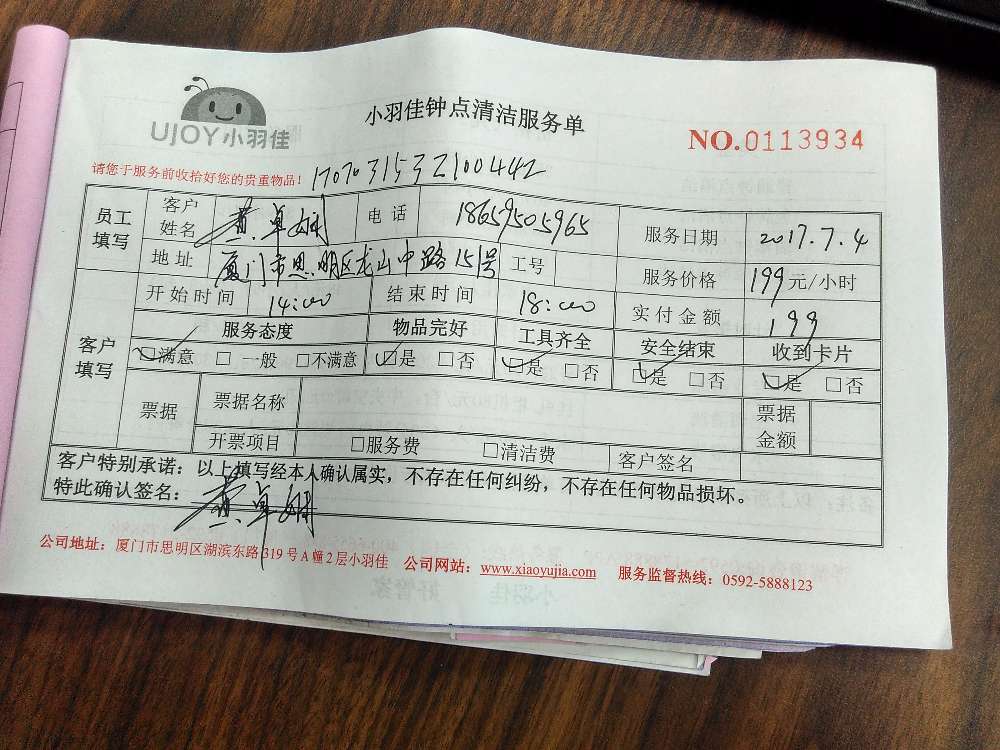 UJOY小羽佳
小羽佳钟点清洁服务单
NO.0113934
请您于服务前收拾好您的贵重物品！
1707031532100442
员工填写 客户姓名 黄卓娴 电话 18659505965 服务日期 2017.7.4
地址 厦门市思明区龙山中路151号 工号 服务价格 199元/小时
开始时间 14:00 结束时间 18:00 实付金额 199
客户填写 服务态度 物品完好 工具齐全 安全结束 收到卡片
☑满意 □一般 □不满意 ☑是 □否 ☑是 □否 ☑是 □否 ☑是 □否
票据 票据名称 票据金额
开票项目 □服务费 □清洁费 客户签名
客户特别承诺：以上填写经本人确认属实，不存在任何纠纷，不存在任何物品损坏。
特此确认签名：黄卓娴
公司地址：厦门市思明区湖滨东路319号A幢2层小羽佳 公司网站：www.xiaoyujia.com 服务监督热线：0592-5888123